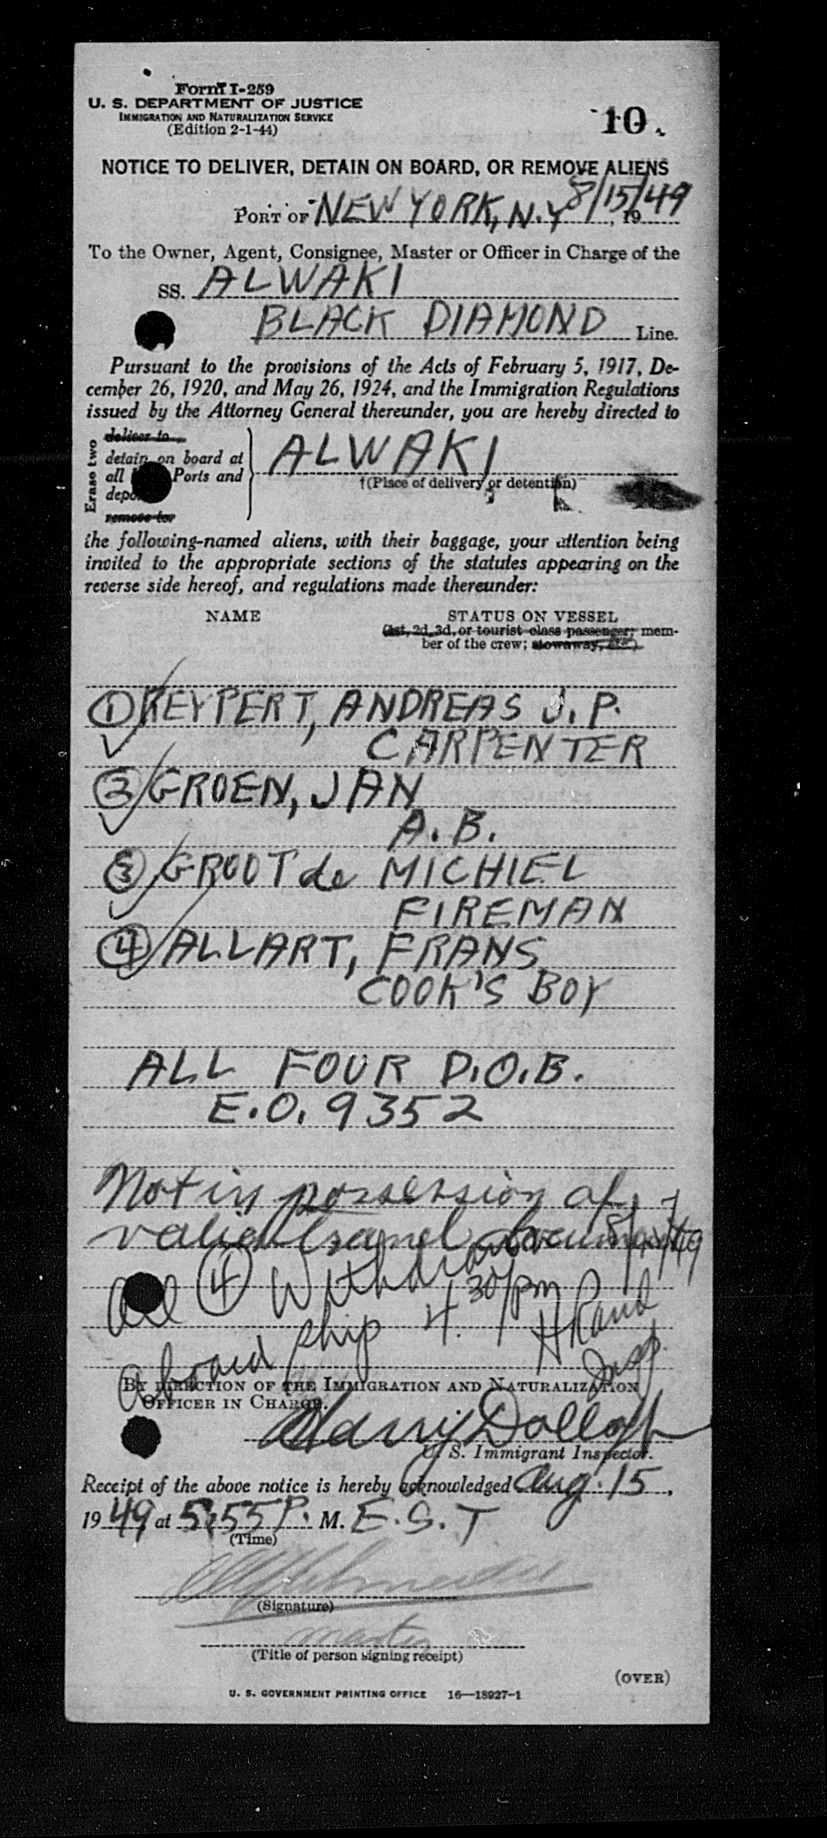 Form I-259
U. S. DEPARTMENT OF JUSTICE
IMMIGRATION AND NATURALIZATION SERVICE
(Edition 2-1-44)
10
NOTICE TO DELIVER, DETAIN ON BOARD, OR REMOVE ALIENS
PORT OF NEW YORK, N.Y 8/15/49, 19
To the Owner, Agent, Consignee, Master or Officer in Charge of the
SS. ALWAKI
BLACK DIAMOND Line.
Pursuant to the provisions of the Acts of February 5, 1917, De-
cember 26, 1920, and May 26, 1924, and the Immigration Regulations
issued by the Attorney General thereunder, you are hereby directed to
Erase two
deliver to
detain on board at
all Ports and
ALWAKI
†(Place of delivery or detention)
remove to
the following-named aliens, with their baggage, your attention being
invited to the appropriate sections of the statutes appearing on the
reverse side hereof, and regulations made thereunder:
NAME STATUS ON VESSEL
(1st, 2d, 3d, or tourist class passenger; mem-
ber of the crew; stowaway, etc.)
① KEYPERT, ANDREAS J. P.
CARPENTER
② GROEN, JAN
A. B.
③ GROOT de MICHIEL
FIREMAN
④ ALLART, FRANS
COOK'S BOY
ALL FOUR D.O.B.
E.O. 9352
Not in possession of
valid travel document
8/17/49
All ④ Withdrawn
aboard ship 4.30/pm
H Rand
Insp.
BY DIRECTION OF THE IMMIGRATION AND NATURALIZATION
OFFICER IN CHARGE.
Harry Dolloff
U. S. Immigrant Inspector.
Receipt of the above notice is hereby acknowledged Aug. 15,
1949 at 5:55 P. M. E.S.T
(Time)
(Signature)
master
(Title of person signing receipt)
(OVER)
U. S. GOVERNMENT PRINTING OFFICE 16—18927-1